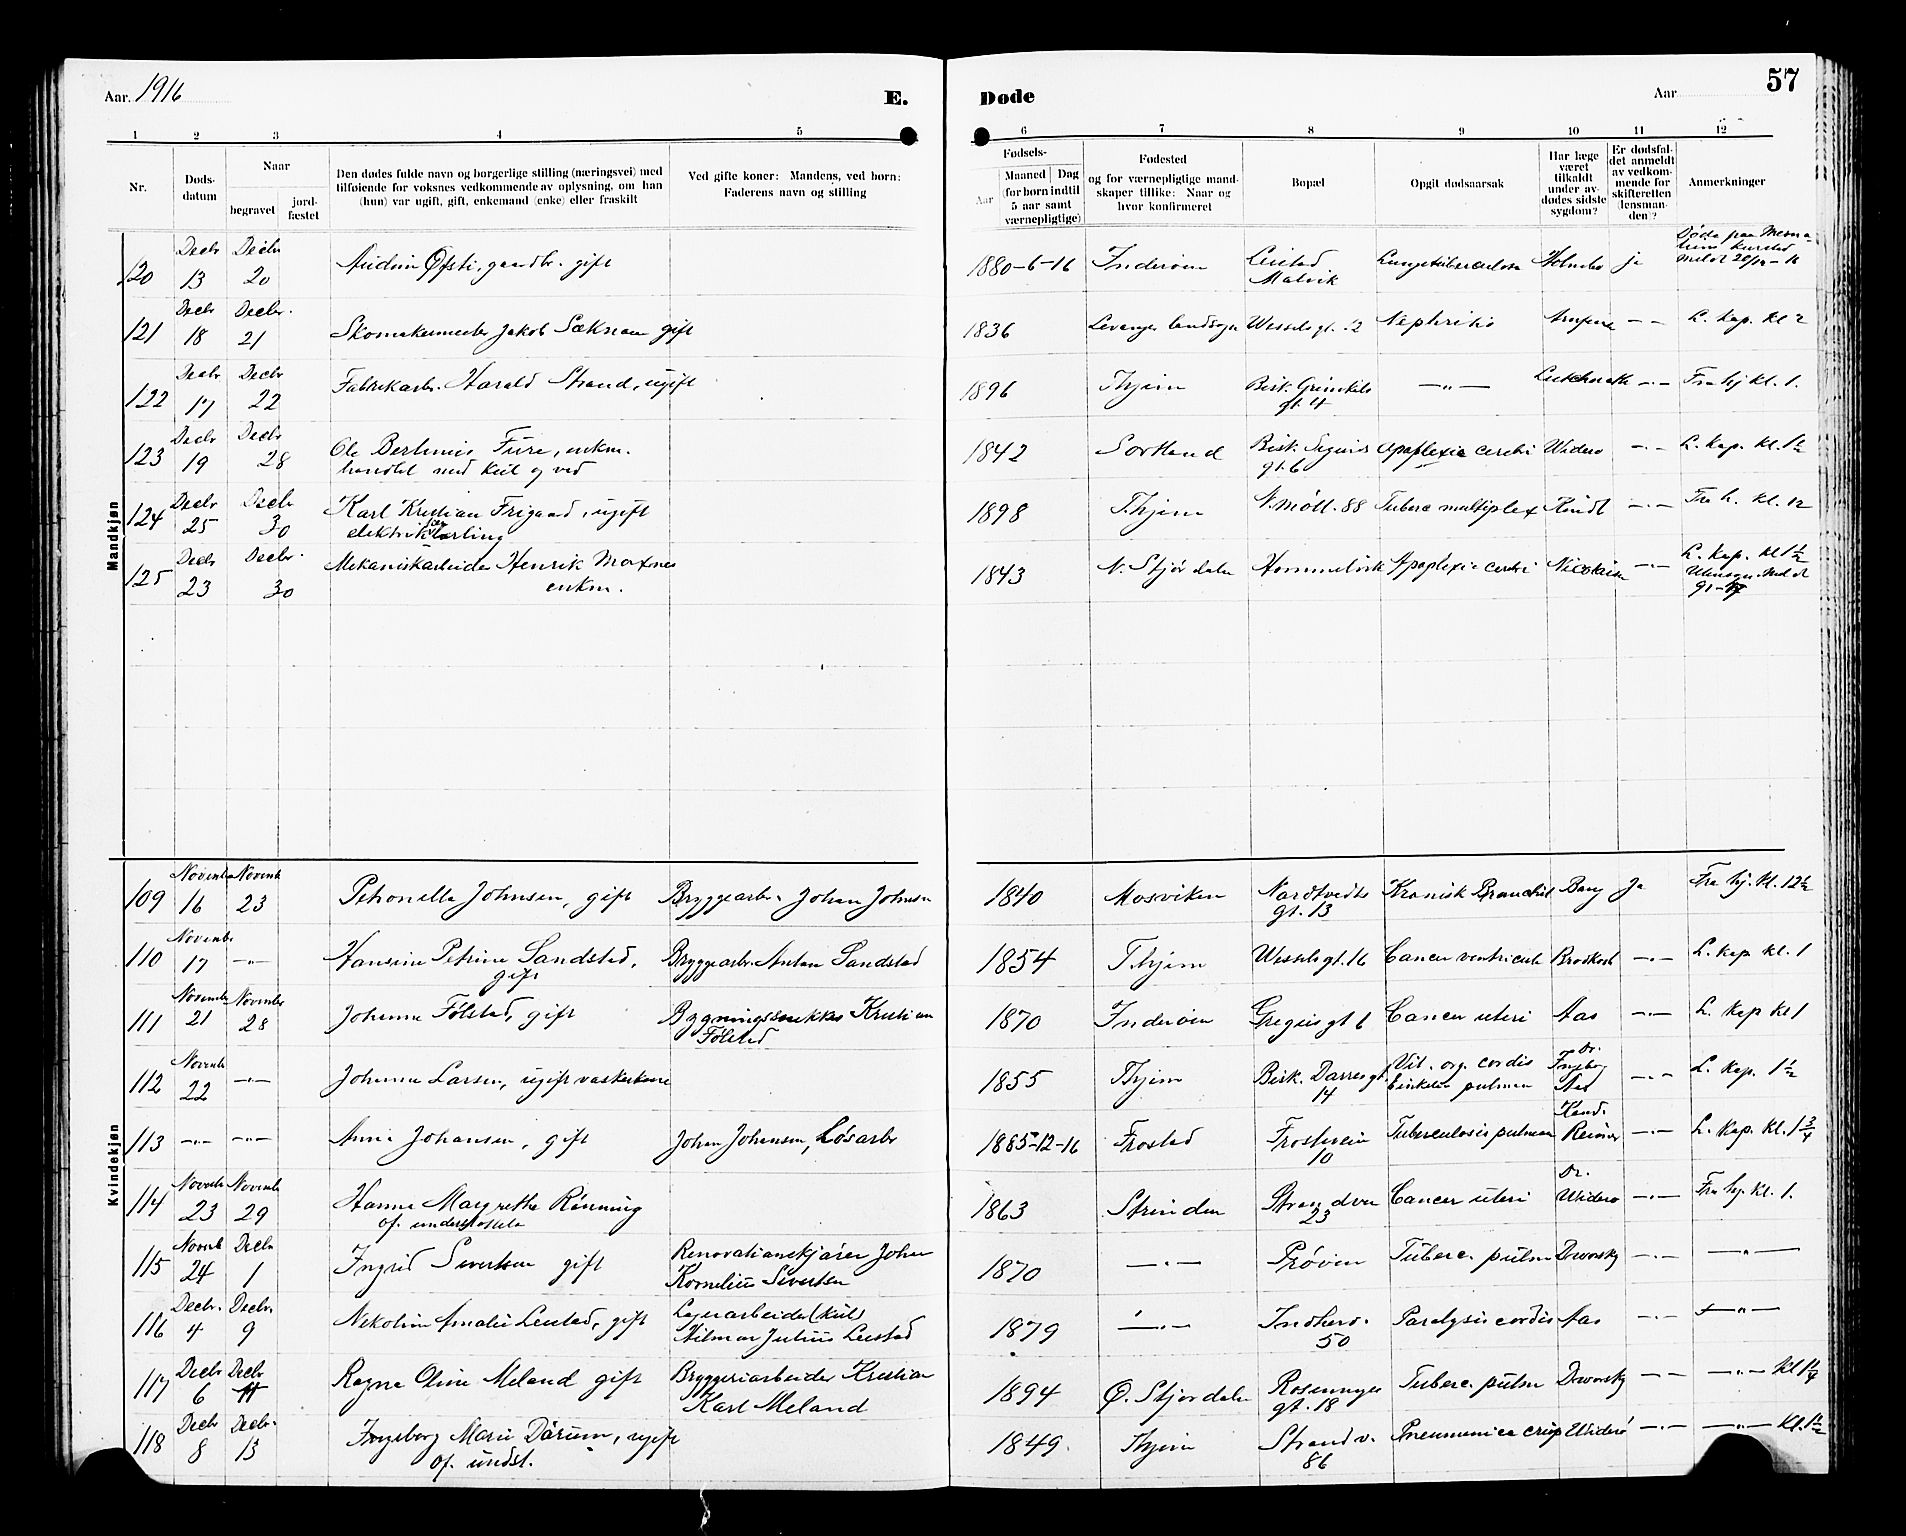 Aar. 1916
E.
Døde
Aar
57
1 2 3 4 5 6 7 8 9 10 11 12
Nr.
Døds-
datum
Naar
begravet
jord-
fæstet
Den dødes fulde navn og borgerlige stilling (næringsvei) med
tilføiende for voksnes vedkommende av oplysning, om han
(hun) var ugift, gift, enkemand (enke) eller fraskilt
Ved gifte koner: Mandens, ved børn:
Faderens navn og stilling
Fødsels-
Aar
Maaned Dag
(for børn indtil
5 aar samt
værnepligtige)
Fødested
og for værnepligtige mand-
skaper tillike: Naar og
hvor konfirmeret
Bopæl
Opgit dødsaarsak
Har læge
været
tilkaldt
under av-
dødes sidste
sygdom?
Er dødsfal-
det anmeldt
av vedkom-
mende for
skifteretten
(lensman-
den)?
Anmerkninger
Mandkjøn
120 Decbr 13 Decbr 20 Øfsti, gaardbr. gift 1880-6-16 Inderøen Leistad Malvik Lungetuberculose Holmboe ja Døde paa kursted
121 Decbr 18 Decbr. 21 Skomakermester Jakob gift 1836 Levanger landsogn Wesselsgt. 12 Nephritis —"— L. kap. kl 2
122 Decbr 17 Decbr 22 Fabrikarb. Harald Strand, ugift 1896 Thjem Bisk. Grimkels gt. 4 —"— —"— Fra hj kl. 1.
123 Decbr 19 Decbr 28 Ole Furre, enkm. handlet med kul og ved 1842 Sortland Bisk. Sigurds gt. 6 Apoplexia cerebri Widerø —"— L. kap. kl. 1½
124 Decbr 25 Decbr 30 Karl Kristian Frigaard, ugift elektrikerlærling 1898 Thjem N. Møll. 88 Tuberc multiplex —"— Fra h. kl. 12
125 Decbr 23 Decbr. 30 Mekaniskarbeider Henrik Moxnes enkm. 1843 N. Stjørdalen Hommelvik Apoplexia cerebri Nicolaisen —"— L. kap. kl 1½
Kvindekjøn
109 Novembr 16 Novembr 23 Petronella Johnsen, gift Bryggearb. Johan Johnsen 1840 Mosviken Nardtvedts gt. 13 Kronisk Bronchit Ja Fra hj. kl. 12½
110 Novembr 17 —"— Hansine Petrine Sandstad, gift Bryggearb. Anton Sandstad 1854 Thjem Wesselsgt. 16 Cancer ventriculi —"— L. kap kl. 1
111 November 21 November 28 Johanna Følstad, gift Bygningssnekker Kristian Følstad 1870 Inderøen Gregus gt 6 Cancer uteri Aas —"— L. kap kl 1
112 Novembr 22 —"— Johanna Larsen, ugift vaskerkone 1855 Thjem Bisk. Darres gt. 14 Vit. org. cordis pulmon Dr. Ingeborg Aas —"— L. kap. 1½
113 —"— —"— Anna Johansen, gift Johan Johansen, Løsarb 1885-12-16 Frostad Frostavein 10 Tuberculosis pulmon Kand. Reimers —"— L. kap. kl. 1¾
114 Novembr 23 Novembr 29 Hanna Margrethe Rønning of. understøttet 1863 Strinden Strandvei 23 Cancer uteri Dr. Widerø —"— Fra hj. kl. 1.
115 Novemb 24 Decbr 1 Ingrid Sivertsen gift Renovationskjører Johan Kornelius Sivertsen 1870 —"— Prøven Tuberc. pulm Dworsky —"— —"—
116 Decbr. 4 Decbr. 9 Nikoline Amalie Leistad, gift Lagerarbeider (kul) Hilmar Julius Leistad 1879 —"— Indherv. 50 Paralysis cordis Aas —"— —"—
117 Decbr 6 Decbr 11 Ragna Oline Meland gift Bryggeriarbeider Kristian Karl Meland 1894 Ø. Stjørdalen Rosenborgs gt. 18 Tuberc. pulm Dworsky —"— —"— kl 1¼
118 Decbr 8 Decbr. 13 Ingeborg Marie Dårum, ugift Of. undst. 1849. Thjem Strandv. 86 Pneumonica crup Widerø —"— —"— kl. 1½